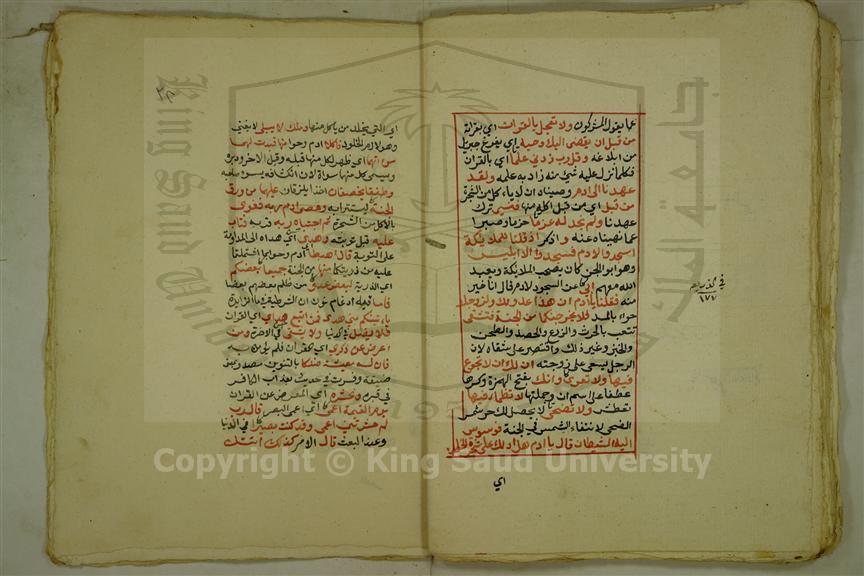 عما يقول المشركون ولا تعجل بالقران اي بقراته
من قبل ان يقضى اليك وحيه اي يفرغ جبريل
من ابلاغه وقل رب زدني علما اي بالقران
فكلما نزل عليه شي منه زاد به علمه ولقد
عهدنا الى ادم وصيناه ان لا ياكل من الشجرة
من قبل اي من قبل اكله منها فنسي ترك
عهدنا ولم نجد له عزما حزما وصبرا
عما نهيناه عنه و اذكر اذ قلنا للملايكة
اسجدوا لادم فسجدوا الا ابليس
وهو ابو الجن كان يصحب الملايكة ويعبد
الله معهم ابى عن السجود لادم قال انا خير
منه فقلنا يا ادم ان هذا عدو لك ولزوجك
حواء بالمد فلا يخرجنكما من الجنة فتشقى
تتعب بالحرث والزرع والحصد والطحن
والخبز وغير ذلك واقتصر على شقاه لان
الرجل يسعى على زوجته ان لك ان لا تجوع
فيها ولا تعرى وانك بفتح الهمزة وكسرها
عطفا على اسم ان وجملتها لا تظما فيها
تعطش ولا تضحى لا يحصل لك حر شمس
الضحى لانتفاء الشمس في الجنة فوسوس
اليه الشيطان قال يا ادم هل ادلك على شجرة الخلد
اي
١٧٧
اي التي يخلد من ياكل منها وملك لا يبلى لا يفنى
وهو لازم الخلود فاكلا ادم وحوا منها فبدت لهما
سواتهما اي ظهر لكل منها قبله وقبل الاخر ودبره
وسمي كل منها سواة لان انكشافه يسوء صاحبه
وطفقا يخصفان اخذا يلزقان عليهما من ورق
الجنة ليستترا به وعصى ادم ربه فغوى
بالاكل من الشجرة ثم اجتباه ربه قربه فتاب
عليه قبل توبته وهدى اي هداه الى المداومة
على التوبة قال اهبطا اي ادم وحوا بما اشتملتما
عليه من ذريتكما منها من الجنة جميعا بعضكم
اي الذرية لبعض عدو من ظلم بعضهم بعضا
فاما فيه ادغام نون ان الشرطية في ما الزايدة
ياتينكم مني هدى فمن اتبع هداي اي القران
فلا يضل في الدنيا ولا يشقى في الاخرة ومن
اعرض عن ذكري اي القران فلم يؤمن به
فان له معيشة ضنكا بالتنوين مصدر بمعنى
ضيقة وفسرت في حديث بعذاب الكافر
في قبره ونحشره اي المعرض عن القران
يوم القيمة اعمى اي اعمى البصر قال رب
لم حشرتني اعمى وقد كنت بصيرا في الدنيا
وعند البعث قال الامر كذلك اتتك
Copyright © King Saud University
King Saud University
جامعة الملك